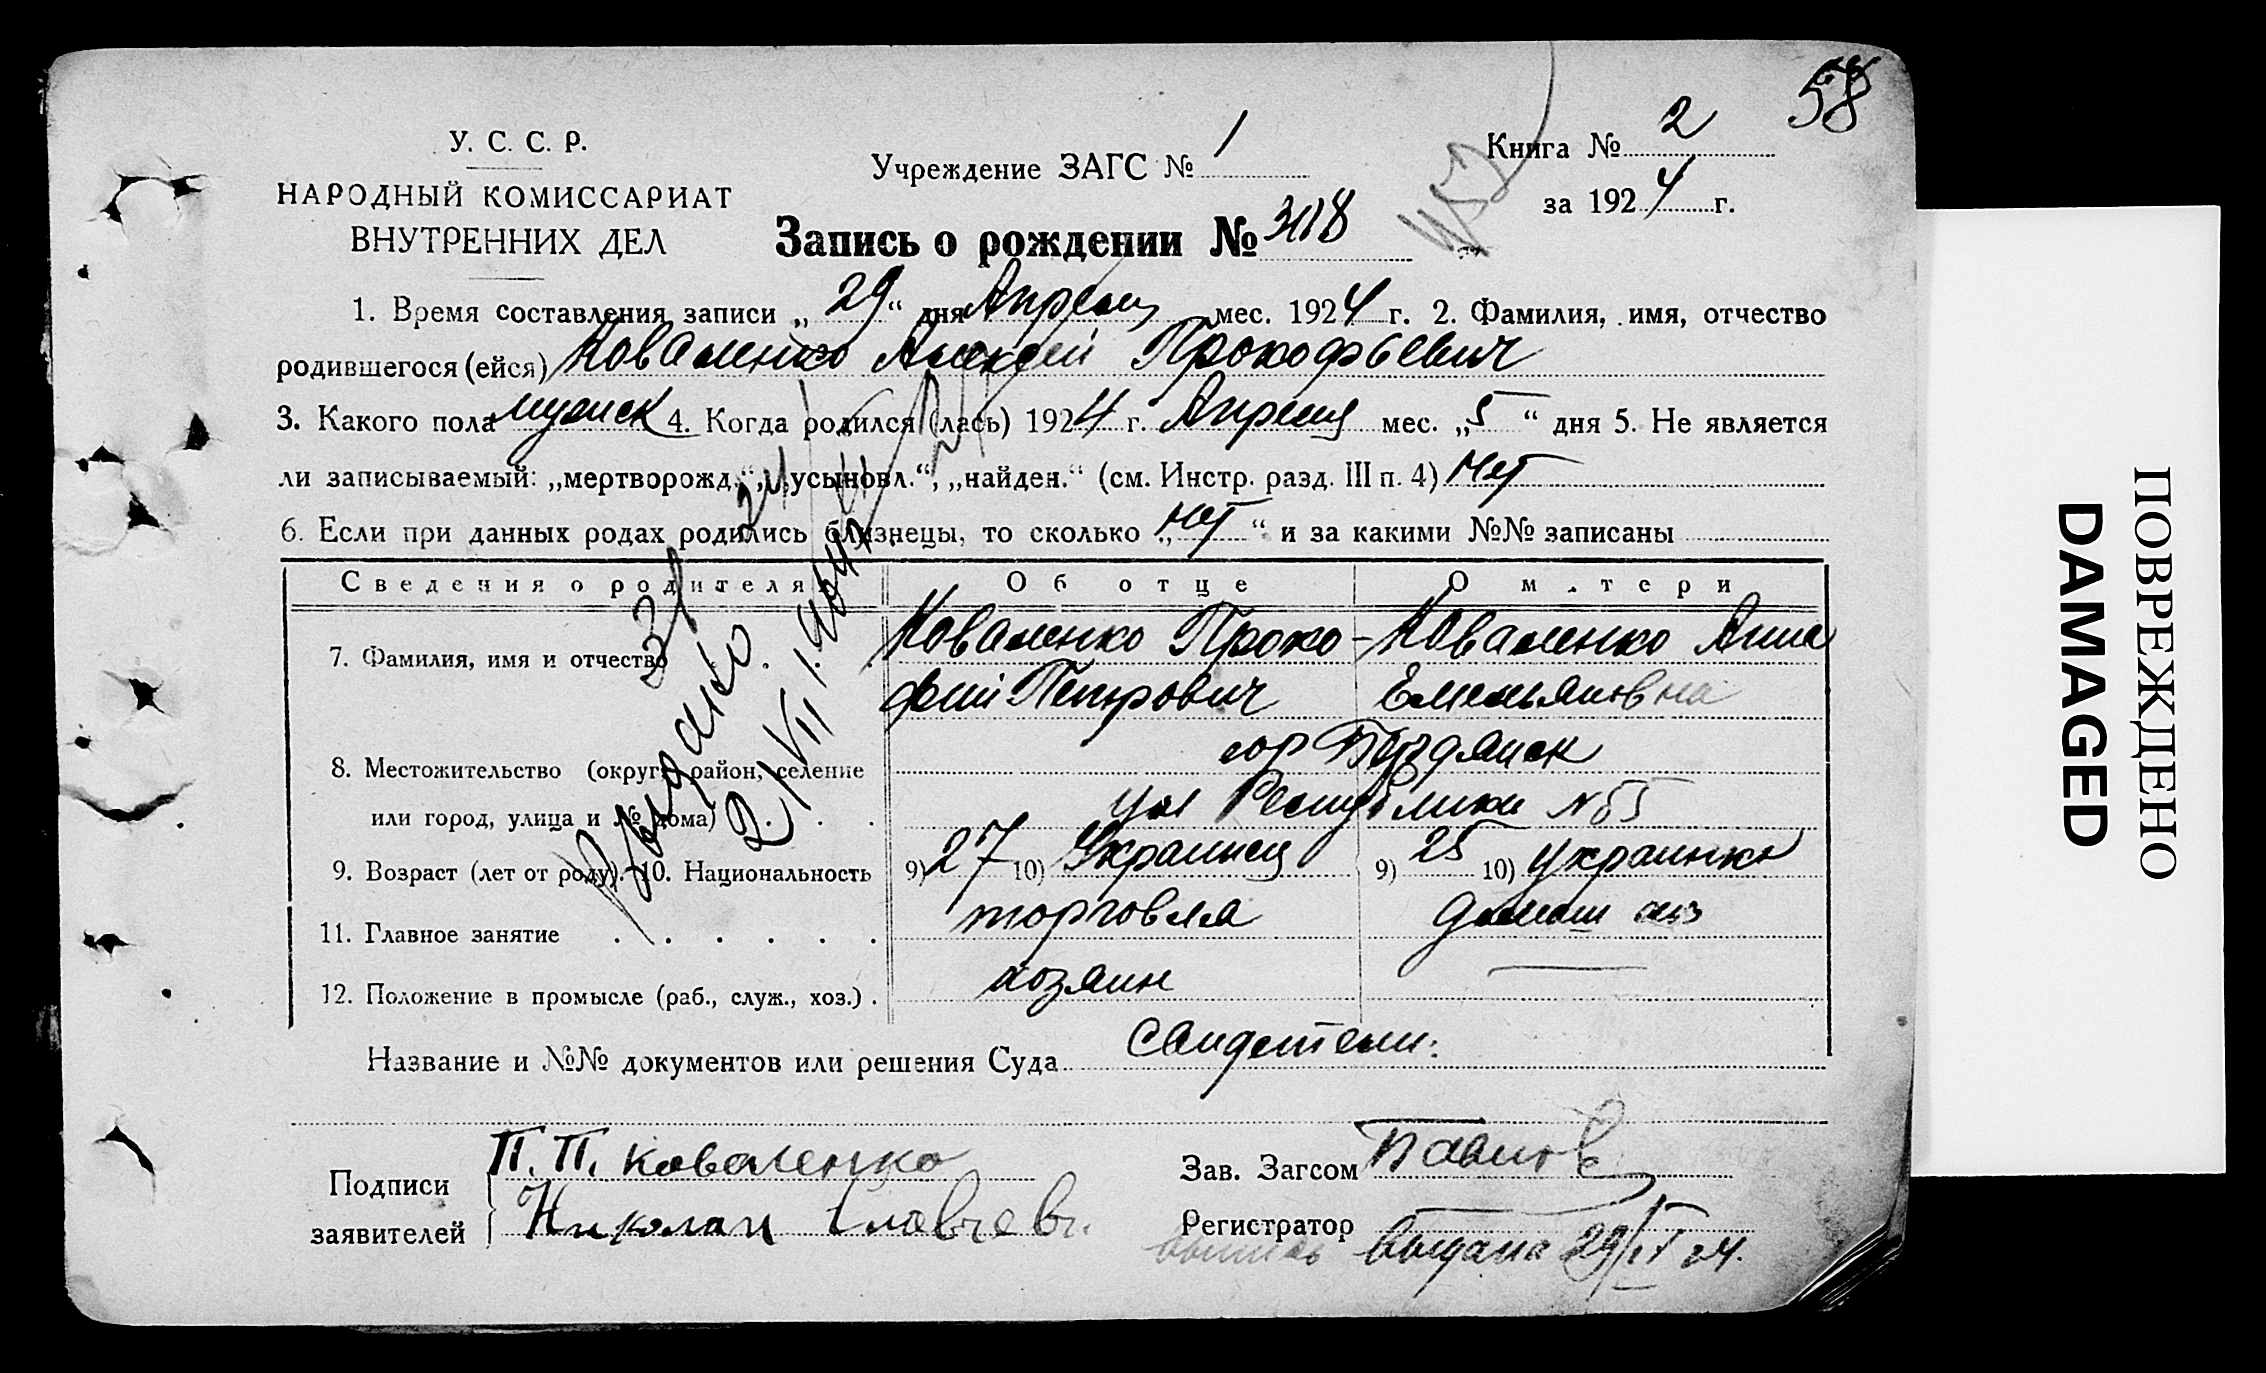 58
У. С. С. Р.
НАРОДНЫЙ КОМИССАРИАТ
ВНУТРЕННИХ ДЕЛ
Учреждение ЗАГС № 1
Книга № 2
за 1924 г.
Запись о рождении № 318
1. Время составления записи „29“ дня Апреля мес. 1924 г. 2. Фамилия, имя, отчество
родившегося (ейся) Коваленко Алексей Прокофьевич
3. Какого пола мужск 4. Когда родился (лась) 1924 г. Апреля мес. „5“ дня 5. Не является
ли записываемый: „мертворожд.“, „усыновл.“, „найден.“ (см. Инстр. разд. III п. 4) Нет
6. Если при данных родах родились близнецы, то сколько „нет“ и за какими №№ записаны
Сведения о родителях Об отце О матери
7. Фамилия, имя и отчество Коваленко Проко- Коваленко Анна
фий Петрович Емельяновна
8. Местожительство (округ, район, селение гор Бердянск
или город, улица и № дома) ул Республики № 55
9. Возраст (лет от роду). 10. Национальность 9) 27 10) Украинец 9) 25 10) украинка
11. Главное занятие торговля домаш хоз
12. Положение в промысле (раб., служ., хоз.) хозяин
Название и №№ документов или решения Суда Свидетели:
Подписи заявителей П. П. Коваленко
Николай
Зав. Загсом Павлов
Регистратор
выпись выдана 29/IV 24.
Выдано
ПОВРЕЖДЕНО
DAMAGED